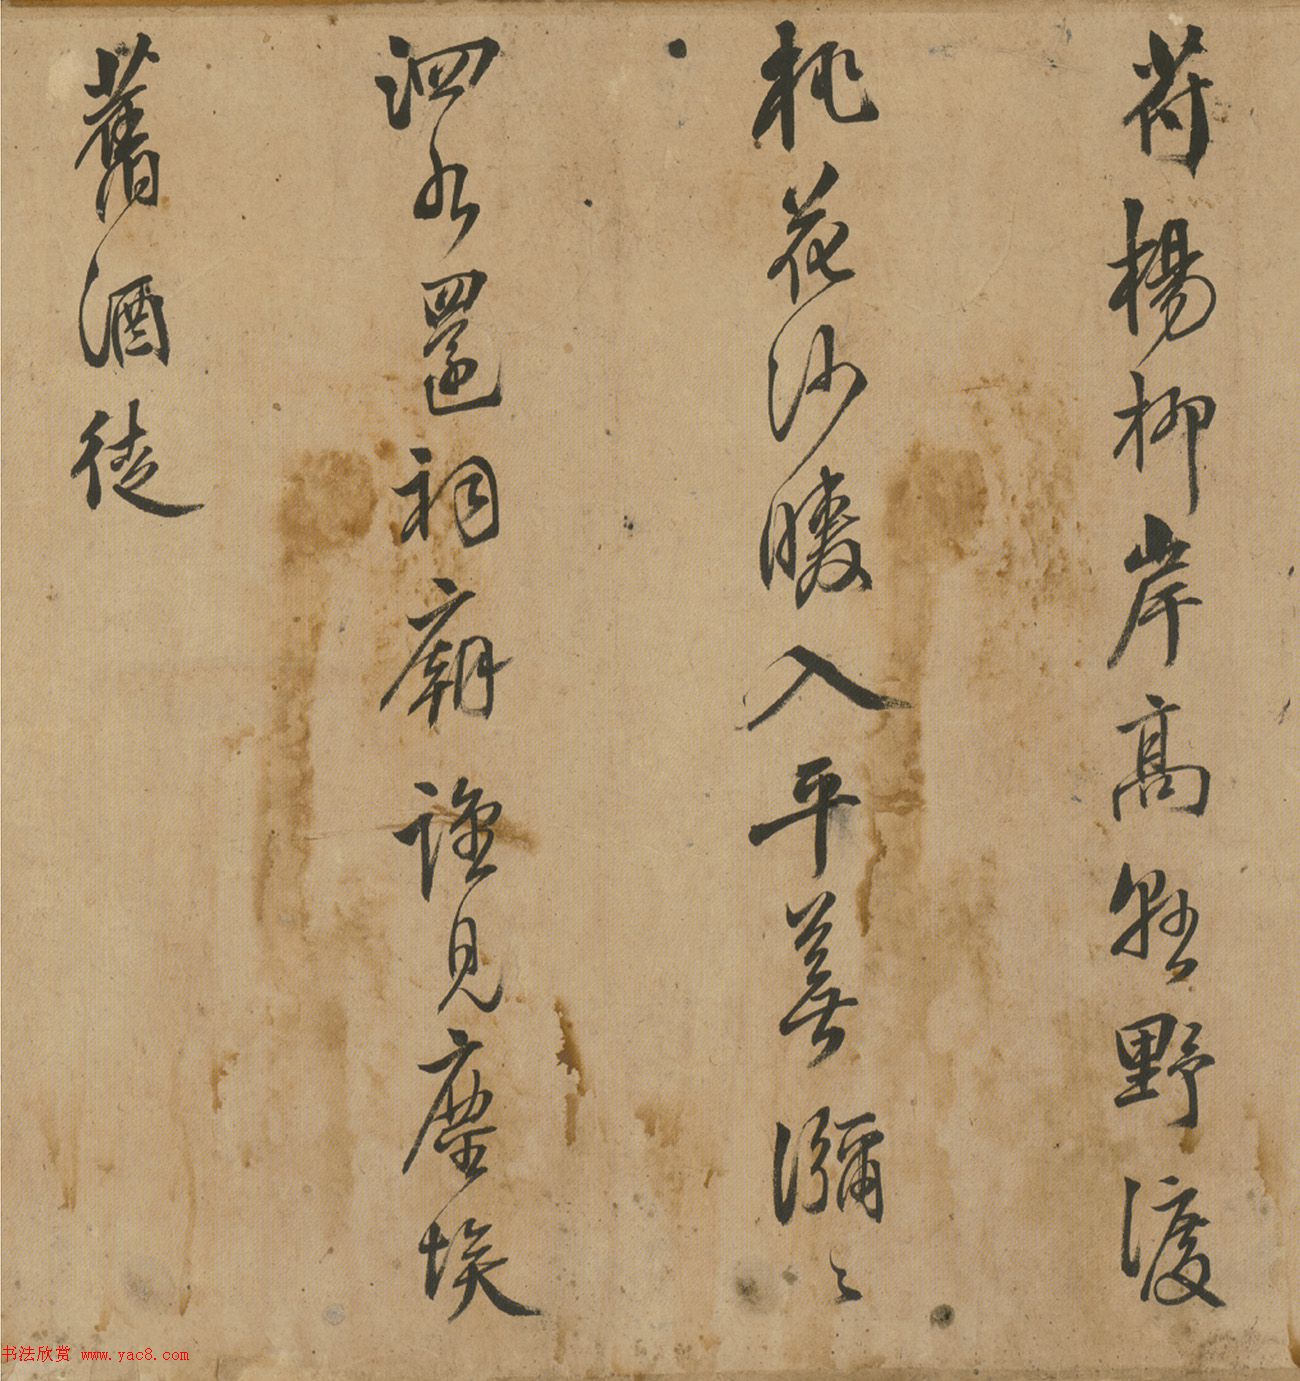 苻楊柳岸高臨野渡
桃花沙暖入平蕪瀰〻
泗水還祠廟誰見塵埃
舊酒徒
书法欣赏 www.yac8.com